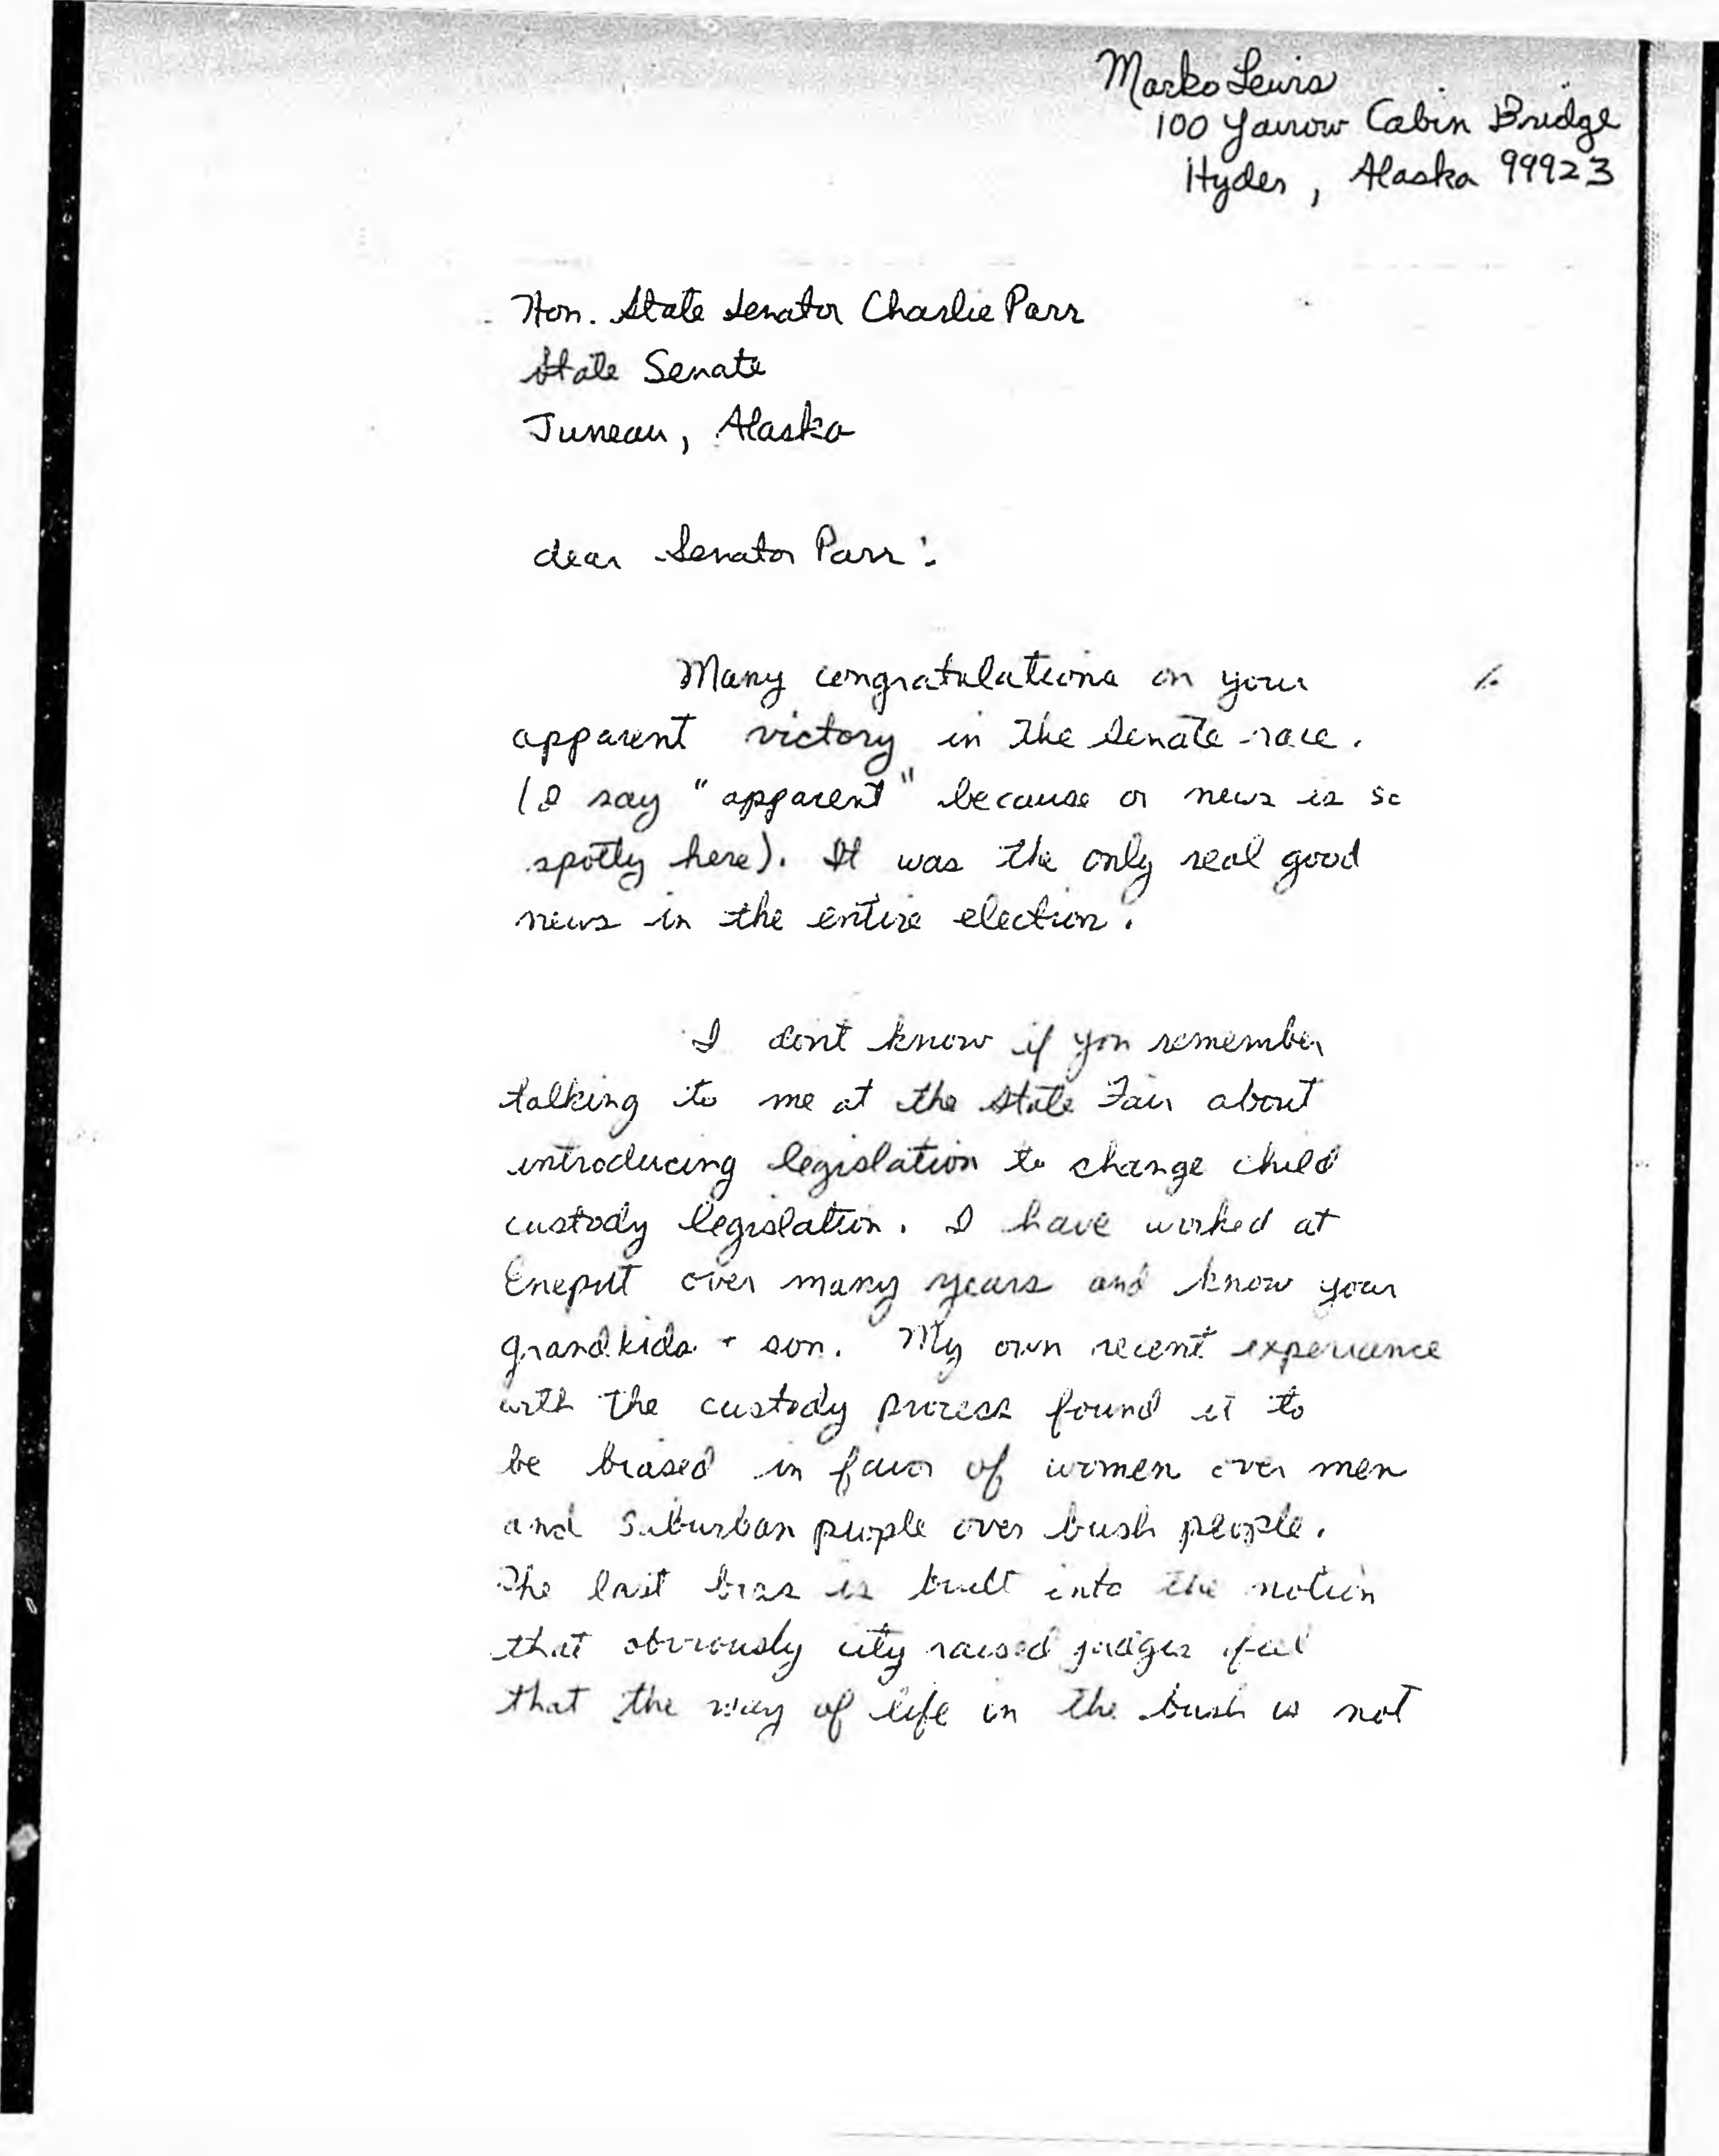 Marko Lewis
100 Yarrow Cabin Bridge
Hyder, Alaska 99923
Hon. State Senator Charlie Parr
State Senate
Juneau, Alaska
dear Senator Parr:
Many congratulations on your
apparent victory in the Senate race.
(I say "apparent" because or news is so
spotty here). It was the only real good
news in the entire election.
I don't know if you remember
talking to me at the State Fair about
introducing legislation to change child
custody legislation. I have worked at
Eneput over many years and know your
grandkids + son. My own recent experience
with the custody process found it to
be biased in favor of women over men
and suburban people over bush people.
The last bias is built into the notion
that obviously city raised judges feel
that the way of life in the bush is not